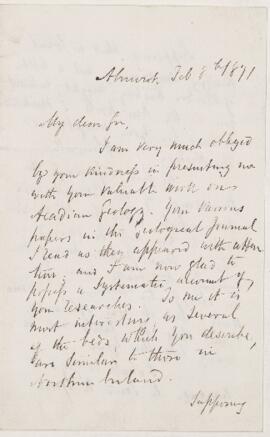 Alnwick Feb 8th 1871
My dear Sir,
I am very much obliged
by your kindness in presenting me
with your valuable work on
Acadian Geology. Your various
papers in the Geological Journal
I read as they appeared with atten
tion; and I am now glad to
possess a systematic account of
your researches. To me it is
most interesting as several
of the beds which you describe,
are similar to those in
Northumberland.
Supposing